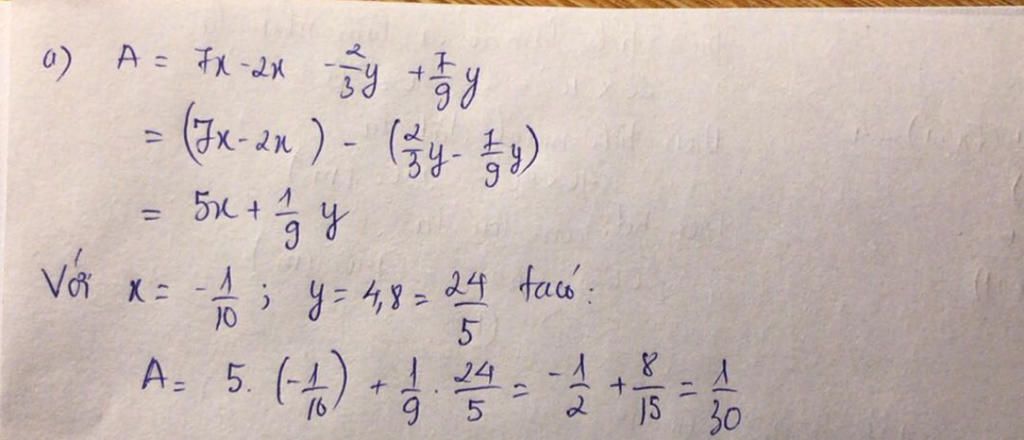 a) A = 7x - 2x - 2/3 y + 7/9 y
= (7x - 2x) - (2/3 y - 7/9 y)
= 5x + 1/9 y
Với x = - 1/10 ; y = 4,8 = 24/5 ta có:
A = 5. (- 1/10) + 1/9 . 24/5 = - 1/2 + 8/15 = 1/30